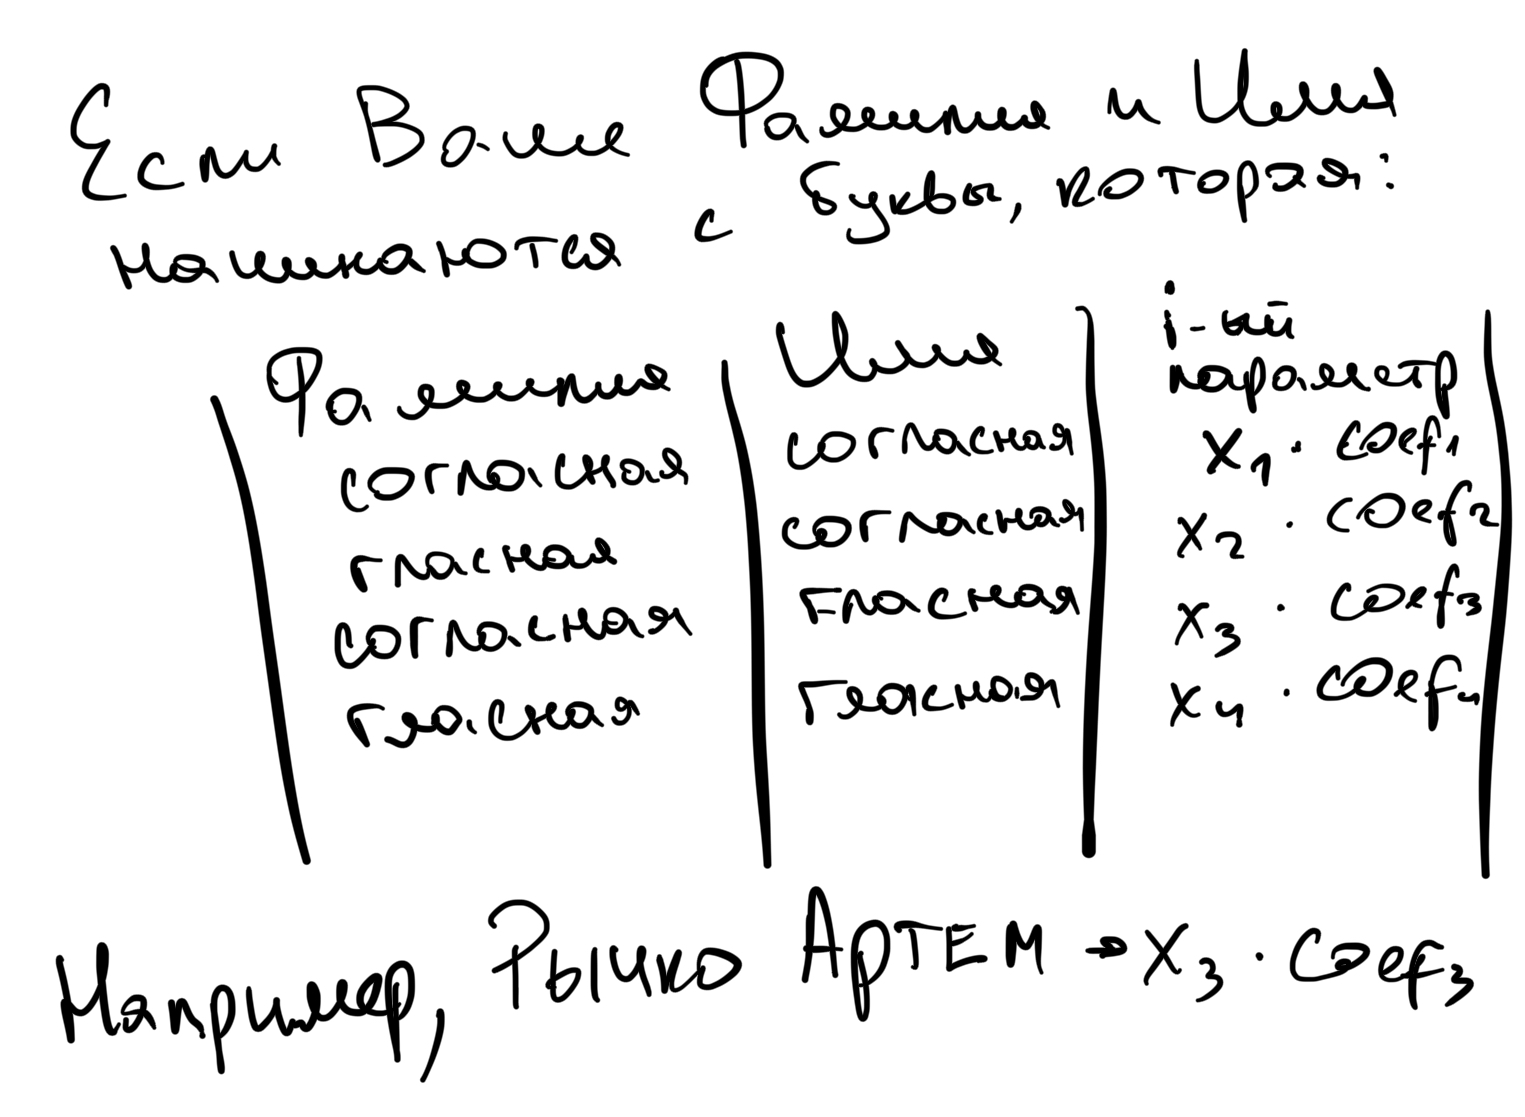 Если Ваши Фамилия и Имя
начинаются с буквы, которая:
Фамилия Имя i-ый параметр
согласная согласная x1 · coef1
гласная согласная x2 · coef2
согласная гласная x3 · coef3
гласная гласная x4 · coef4
Например, Рычко АРТЕМ → x3 · coef3